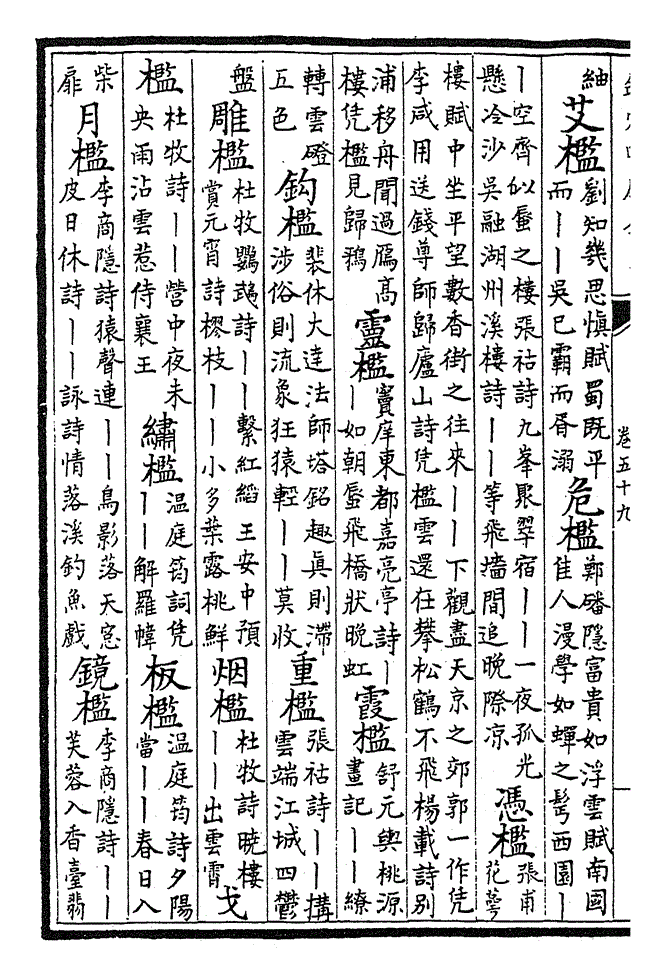 紬艾檻劉知幾思愼賦蜀既平而||吳已霸而胥溺危檻鄭磻隱富貴如浮雲賦南國佳人漫學如蟬之髩西園|
|空齊似蜃之樓張祜詩九峯聚翠宿||一夜孤光懸冷沙吳融湖州溪樓詩||等飛墻間追晚際凉憑檻張甫花萼
樓賦中坐平望數香街之往來||下觀盡天京之郊郭一作凭李咸用送錢尊師歸廬山詩凭檻雲還在攀松鶴不飛楊載詩別
浦移舟聞過鴈高樓凭檻見歸鵶靈檻竇庠東都嘉亮亭詩||如朝蜃飛橋狀晚虹霞檻舒元輿桃源畫記||繚
轉雲磴五色鈎檻裴休大達法師塔銘趣眞則滯涉俗則流象狂猿輕||莫收重檻張祜詩||搆雲端江城四鬱
盤雕檻杜牧鸚鵡詩||繫紅縚王安中預賞元宵詩樛枝||小多葉露桃鮮烟檻杜牧詩曉樓||出雲霄戈
檻杜牧詩||營中夜未央雨沾雲惹侍襄王繡檻温庭筠詞凭||解羅幃板檻温庭筠詩夕陽當||春日入
柴扉月檻李商隱詩猿聲連||鳥影落天窓皮日休詩||詠詩情落溪釣魚戲鏡檻李商隱詩||芙蓉入香臺翡
卷五十九